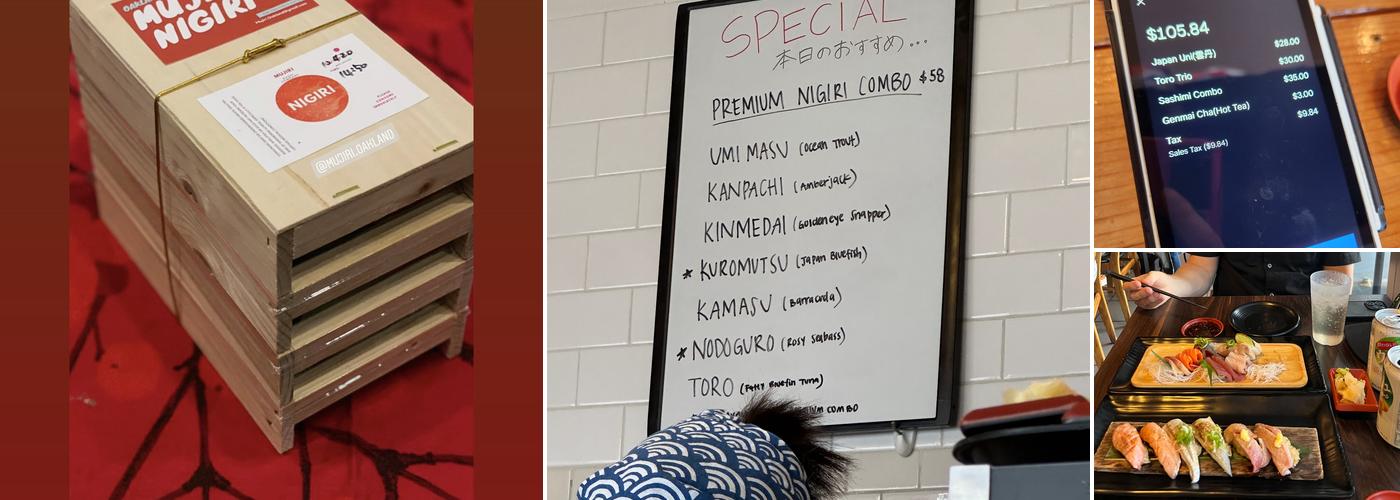 MUJIRI
NIGIRI
MUJIRI
NIGIRI
14:50
@MUJIRI.OAKLAND
SPECIAL
本日のおすすめ...
PREMIUM NIGIRI COMBO $58
UMI MASU (Ocean Trout)
KANPACHI (Amberjack)
KINMEDAI (Goldeneye Snapper)
* KUROMUTSU (Japan Bluefish)
KAMASU (Barracuda)
* NODOGURO (Rosy Seabass)
TORO (Fatty Bluefin Tuna)
COMBO
$105.84
Japan Uni(雲丹) $28.00
Toro Trio $30.00
Sashimi Combo $35.00
Genmai Cha(Hot Tea) $3.00
Tax $9.84
Sales Tax ($9.84)